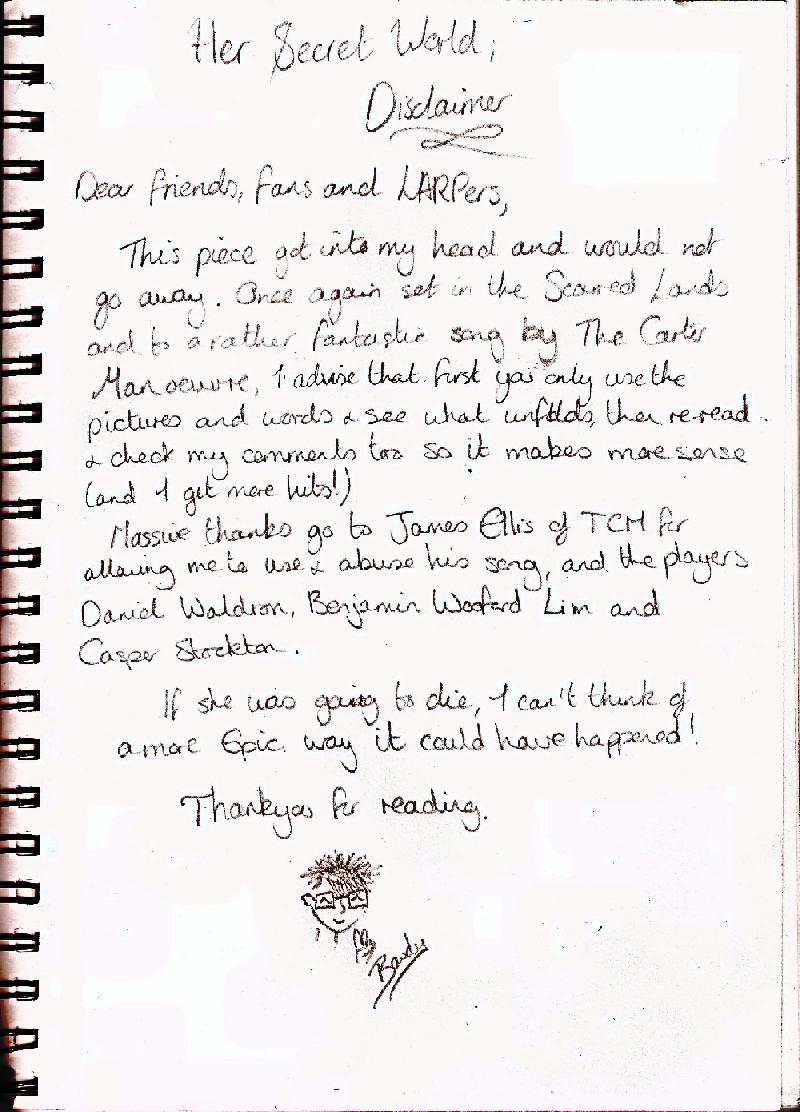 Her Secret World;
Disclaimer
Dear friends, fans and LARPers,
This piece got into my head and would not
go away. Once again set in the Scarred Lands
and to a rather fantastic song by The Carter
Manoeuvre, I advise that first you only use the
pictures and words & see what unfolds, then re-read
& check my comments too so it makes more sense
(and I get more hits!)
Massive thanks go to James Ellis of TCM for
allowing me to use & abuse his song, and the players
Daniel Waldron, Benjamin Wooford Lim and
Casper Stockton.
If she was going to die, I can't think of
a more Epic way it could have happened!
Thankyou for reading.